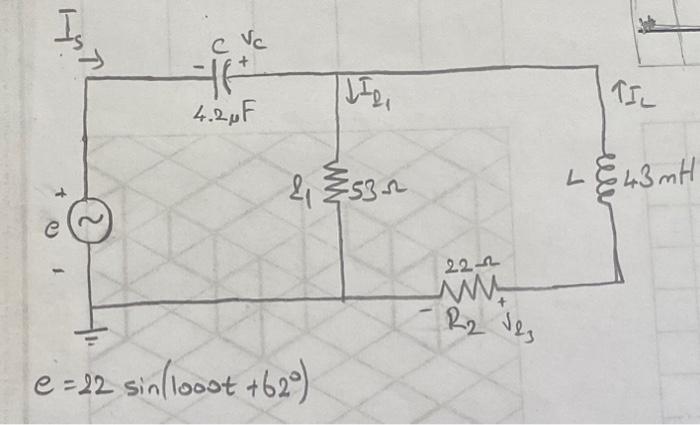 Is
C Vc
- +
4.2μF
↓I21
↑IL
+
e
-
21 53Ω
L 43mH
22Ω
- +
R2 V23
e = 22 sin(1000t + 62°)